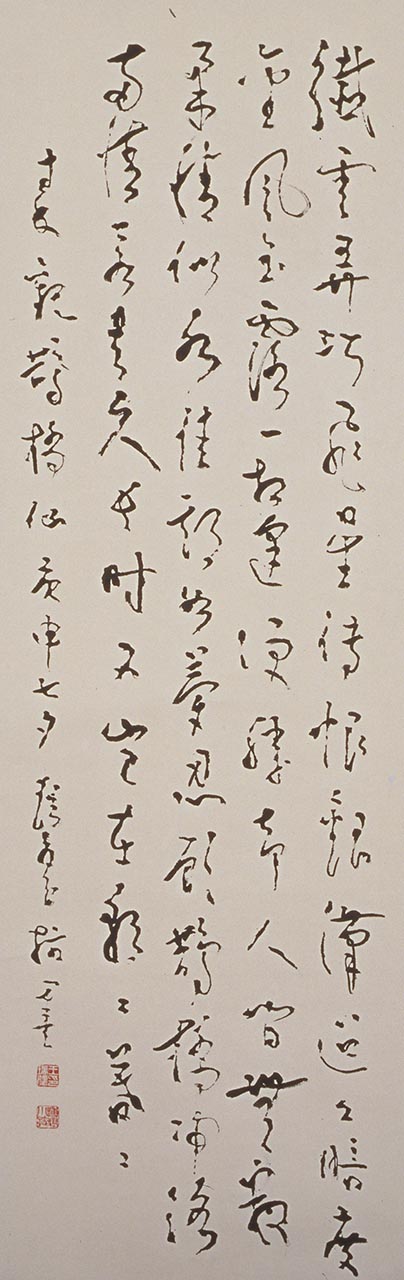 纖雲弄巧飛星傳恨銀漢迢々暗度
金風玉露一相逢便勝却人間無數
柔情似水佳期如夢忍顧鵲橋歸路
兩情若是久長時又豈在朝々暮々
觀鵲橋仙庚申七夕